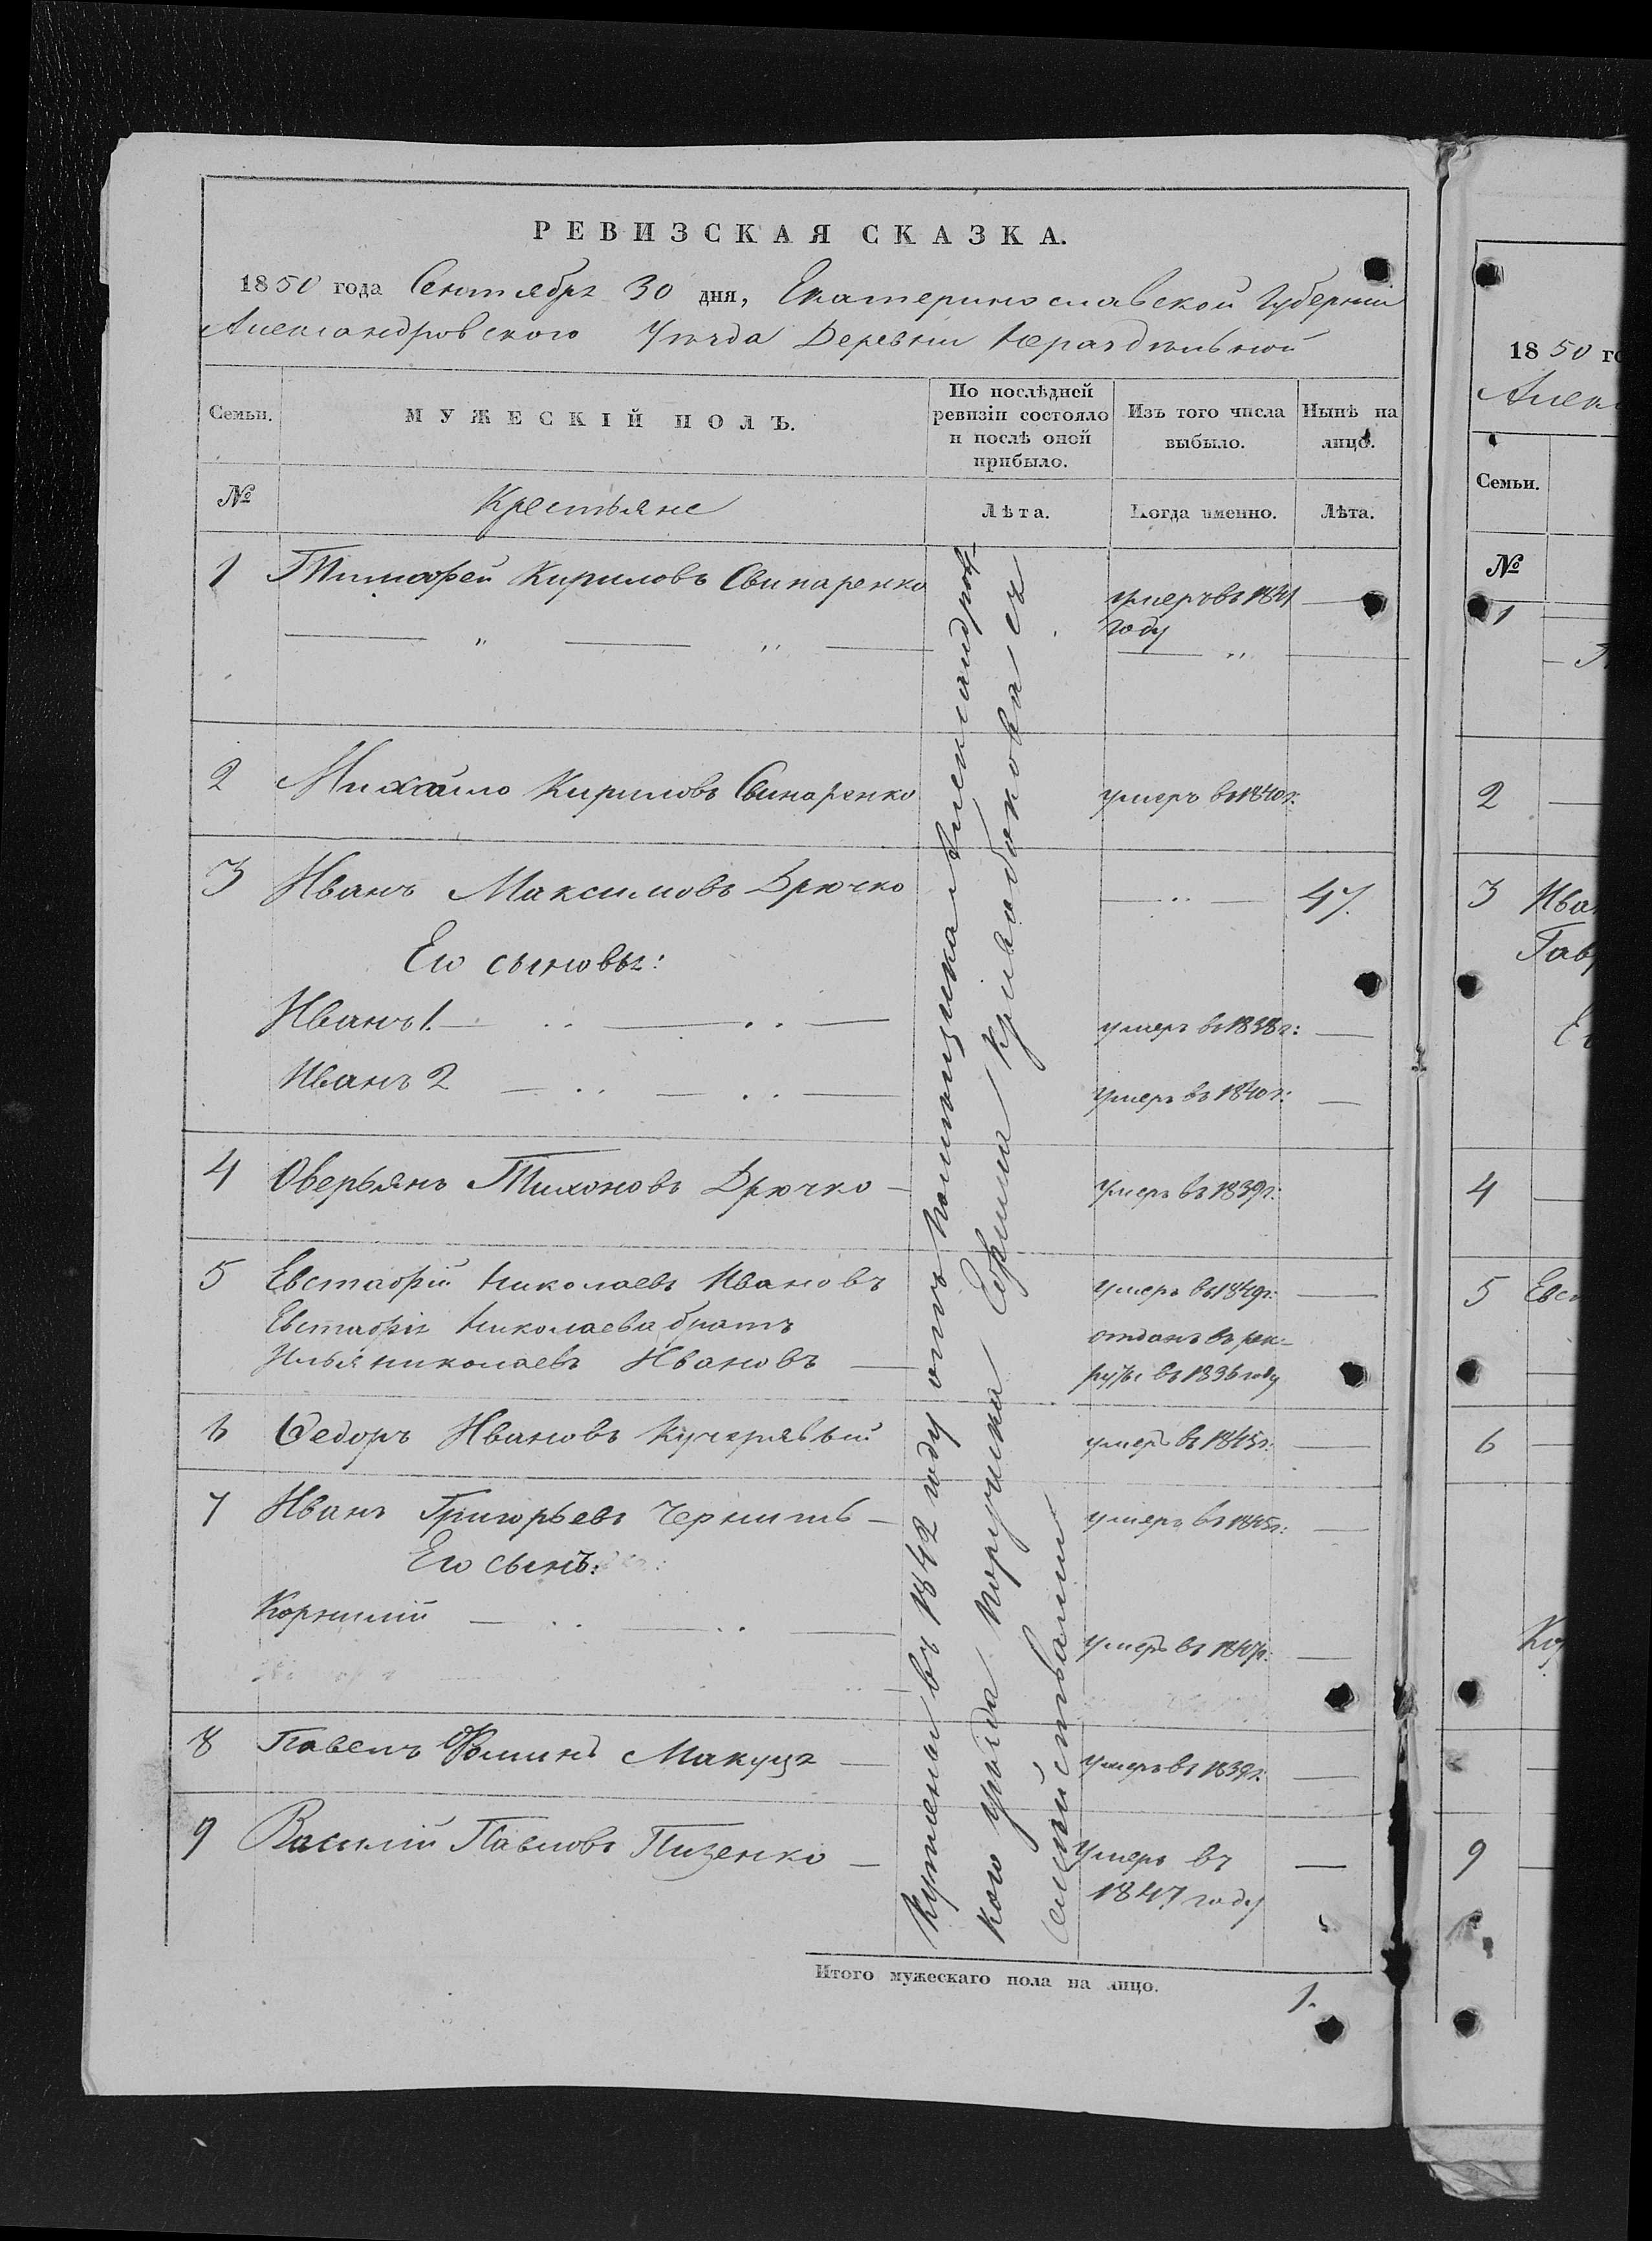 РЕВИЗСКАЯ СКАЗКА.
1850 года Сентября 30 дня, Екатеринославской Губерніи
Александровского Уѣзда Деревни Нераздѣльной
Семьи.
МУЖЕСКІЙ ПОЛЪ.
По послѣдней ревизіи состояло и послѣ оной прибыло.
Изъ того числа выбыло.
Нынѣ на лицо.
№
Крестьяне
Лѣта.
Когда именно.
Лѣта.
1 Тимофей Кириловъ Свинаренко умеръ въ 1841 году
2 Михайло Кириловъ Свинаренко умеръ въ 1840 г:
3 Иванъ Максимовъ Дрючко 47.
Его сыновья:
Иванъ 1. умеръ въ 1838 г:
Иванъ 2 умеръ въ 1840 г:
4 Оверьянъ Тихоновъ Дрючко умеръ въ 1839 г:
5 Евстафій Николаевъ Ивановъ умеръ въ 1849 г:
Евстафія Николаева братъ отданъ въ рек-
Илья Николаевъ Ивановъ руты въ 1836 году
6 Ѳедоръ Ивановъ Кучерявый умеръ въ 1845 г:
7 Иванъ Григорьевъ Чернишъ умеръ въ 1845 г:
Его сынъ:
Корнилій умеръ въ
8 Павелъ Фоминъ умеръ въ 1839 г:
9 Василій Павловъ Пизенко умеръ въ
1847 году
Куплены въ 1842 году отъ помѣщика Александровс-
кого уѣзда Поручика Ефима Кривобокова съ
семействами
Итого мужескаго пола на лицо. 1.
1850 го
Алек
Семьи.
№
1
2
3 Ива
Гав
4
5 Евс
6
Ко
9